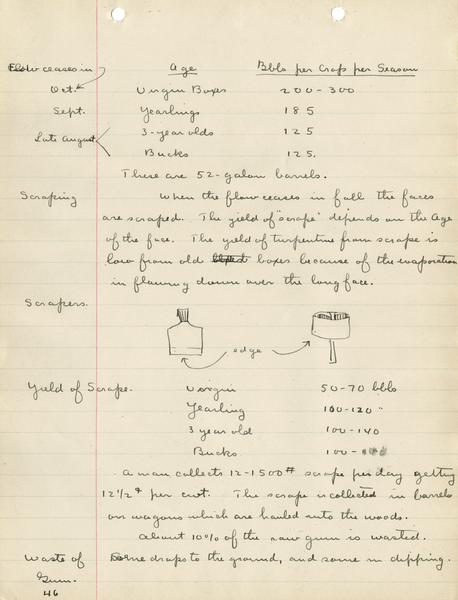 Flow ceases in Age Bbls per Crop per Season
Oct. Virgin Boxes 200-300
Sept. Yearlings 185
Late August 3-year olds 125
Bucks 125.
These are 52-galon barrels.
Scraping When the flow ceases in fall the faces
are scraped. The yield of "scrape" depends on the Age
of the face. The yield of turpentine from scrape is
low from old boxes because of the evaporation
in flowing down over the long face.
Scrapers.
edge
Yield of Scrape. Virgin 50-70 bbls
Yearling 100-120 "
3 year old 100-140
Bucks 100-
A man collects 12-1500# scrape per day getting
12½¢ per cwt. The scrape is collected in barrels
on wagons which are hauled into the woods.
About 10% of the raw gum is wasted.
Waste of Some drops to the ground, and some in dipping.
Gum.
46